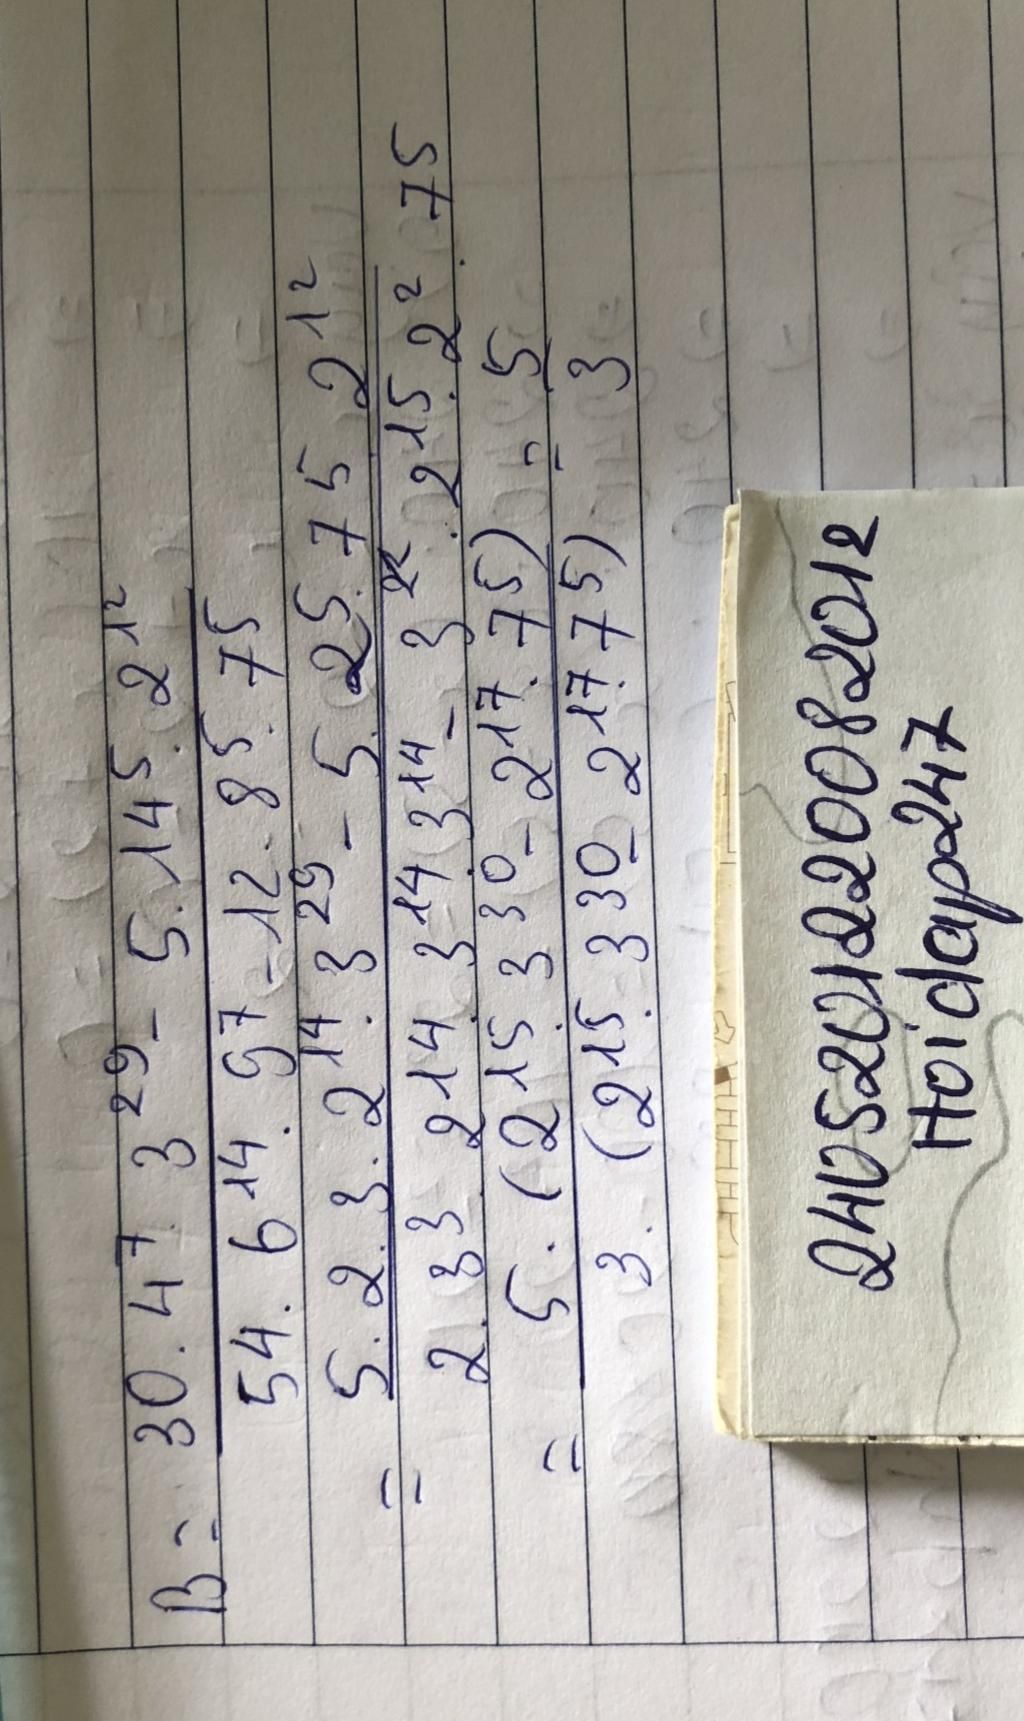 B = 30 . 4⁷ . 3²⁹ - 5 . 14⁵ . 2¹²
54 . 6¹⁴ . 9⁷ - 12 . 8⁵ . 7⁵
= 5 . 2 . 3 . 2¹⁴ . 3²⁹ - 5 . 2⁵ . 7⁵ 2¹²
2 . 3³ . 2¹⁴ . 3¹⁴ . 3¹⁴ - 3 . 2¹⁵ . 2² . 7⁵
= 5 . (2¹⁵ . 3³⁰ - 2¹⁷ . 7⁵) = 5
3 . (2¹⁵ . 3³⁰ - 2¹⁷ . 7⁵) 3
24052021220082012
Hoidap247